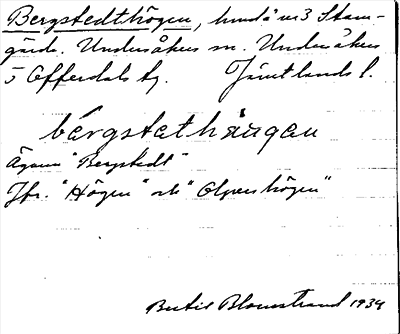 Bergstedthögen, hmd å nr 3 Stam-
gärde. Undersåkers sn. Undersåkers
o Offerdals tg. Jämtlands l.
bérgstethǻugen
Ägare "Bergstedt"
Jfr. "Högen" och "Olpershögen"
Bertil Blomstrand 1934